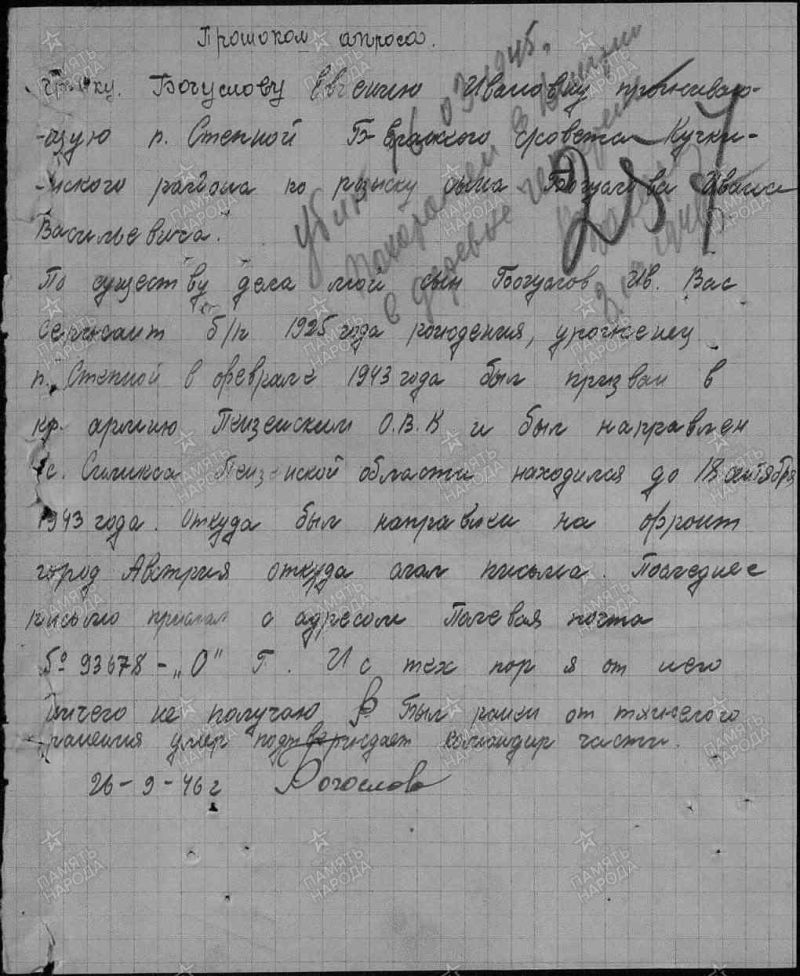 Протокол опроса.
гр-ку. Богуслову Евгению Ивановну проживаю-
-щую п. Степной Б- вражского с/совета Кучки-
-нского района по розыску сына Богуслова Ивана
Васильевича.
По существу дела мой сын Богуслов Ив. Вас
сержант б/п 1925 года рождения, уроженец
п. Степной в феврале 1943 года был призван в
кр. армию Пензенским О.В.К и был направлен
с. Селикса Пензенской области находился до 18 сентября
1943 года. Откуда был направлен на фронт
город Австрия откуда слал письма. Последнее
письмо прислал с адресом Полевая почта
№ 93678-„О" Г. И с тех пор я от него
ничего не получаю Был ранен от тяжелого
ранения умер подтверждает командир части.
26-9-46 г Богослова
убит 16 03 1945.
похоронен в
в деревне
237
ПАМЯТЬ НАРОДА